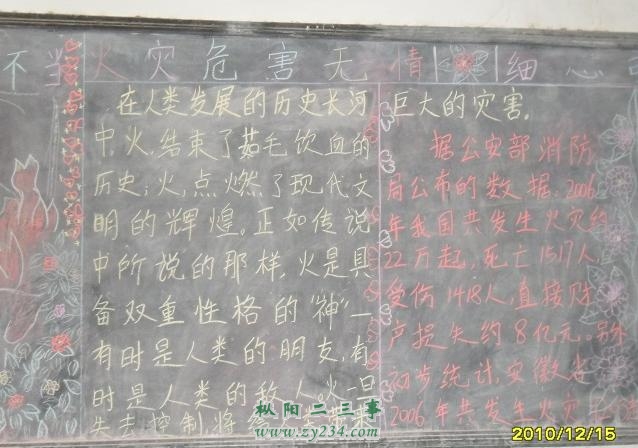 不当火灾危害无情细心
在人类发展的历史长河
中火,结束了茹毛饮血的
历史;火,点燃了现代文
明的辉煌。正如传说
中所说的那样,火是具
备双重性格的“神”一
有时是人类的朋友,有
时是人类的敌人。火一旦
失去控制将会
巨大的灾害。
据公安部消防
局公布的数据:2006
年我国共发生火灾约
22万起,死亡1517人,
受伤1418人,直接财
产损失约8亿元。另外
初步统计,安徽省
2006年共发生火灾
枞阳二三事
www.zy234.com
2010/12/15